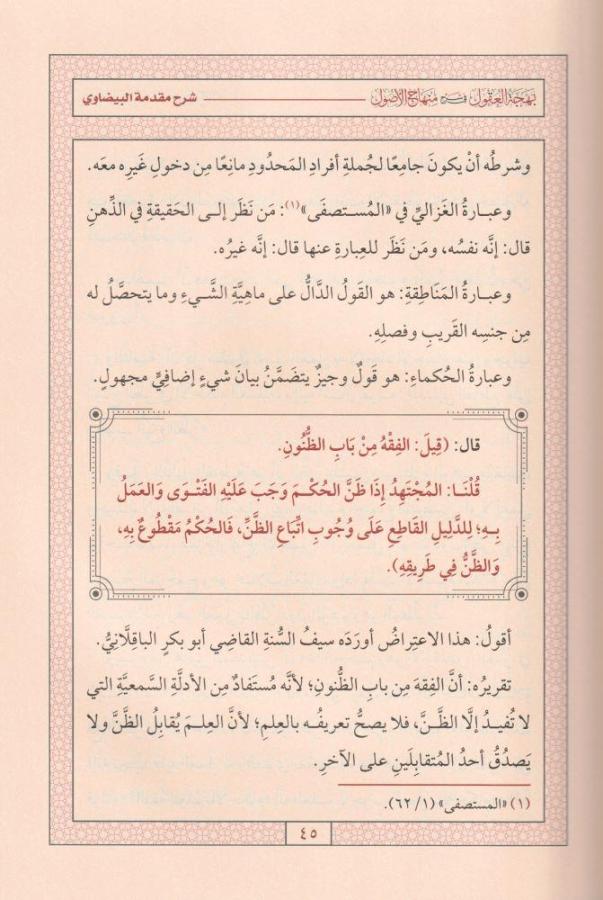 بهجة العقول في شرح منهاج الأصول
شرح مقدمة البيضاوي
وشرطُه أنْ يكونَ جامعًا لجُملةِ أفرادِ المَحدُودِ مانِعًا مِن دخولِ غَيرِه معَه.
وعبــارةُ الغَزاليِّ في «المُسـتصفَى»(١): مَن نَظَر إلــى الحَقيقةِ في الذِّهنِ
قال: إنَّه نفسُه، ومَن نَظَر للعِبارةِ عنها قال: إنَّه غيرُه.
وعبــارةُ المَنَاطِقةِ: هو القَولُ الدَّالُّ على ماهِيَّةِ الشَّــيءِ وما يتحصَّلُ له
مِن جنسِه القَريبِ وفصلِهِ.
وعبارةُ الحُكماءِ: هو قَولٌ وجيزٌ يتضَمَّنُ بيانَ شيءٍ إضافِيٍّ مجهولٍ.
قال: (قِيلَ: الفِقْهُ مِنْ بَابِ الظُّنُونِ.
قُلْنَــا: المُجْتَهِدُ إِذَا ظَنَّ الحُكْــمَ وَجَبَ عَلَيْهِ الفَتْــوَى وَالعَمَلُ
بِــهِ؛ لِلدَّلِيلِ القَاطِعِ عَلَى وُجُوبِ اتِّبَاعِ الظَّنِّ، فَالحُكْمُ مَقْطُوعٌ بِهِ،
وَالظَّنُّ فِي طَرِيقِهِ).
أقولُ: هذا الاعتِراضُ أورَدَه سيفُ السُّنةِ القاضي أبو بكرٍ الباقِلَّانِيُّ.
تقريرُه: أنَّ الفِقهَ مِن بابِ الظُّنونِ؛ لأنَّه مُستَفادٌ مِن الأدلَّةِ السَّمعيَّةِ التي
لا تُفيــدُ إلَّا الظَّــنَّ، فلا يصحُّ تعريفُــه بالعِلمِ؛ لأنَّ العِلــمَ يُقابِلُ الظَّنَّ ولا
يَصدُقُ أحدُ المُتقابِلَينِ على الآخرِ.
(١) «المستصفى» (١/ ٦٢).
٤٥